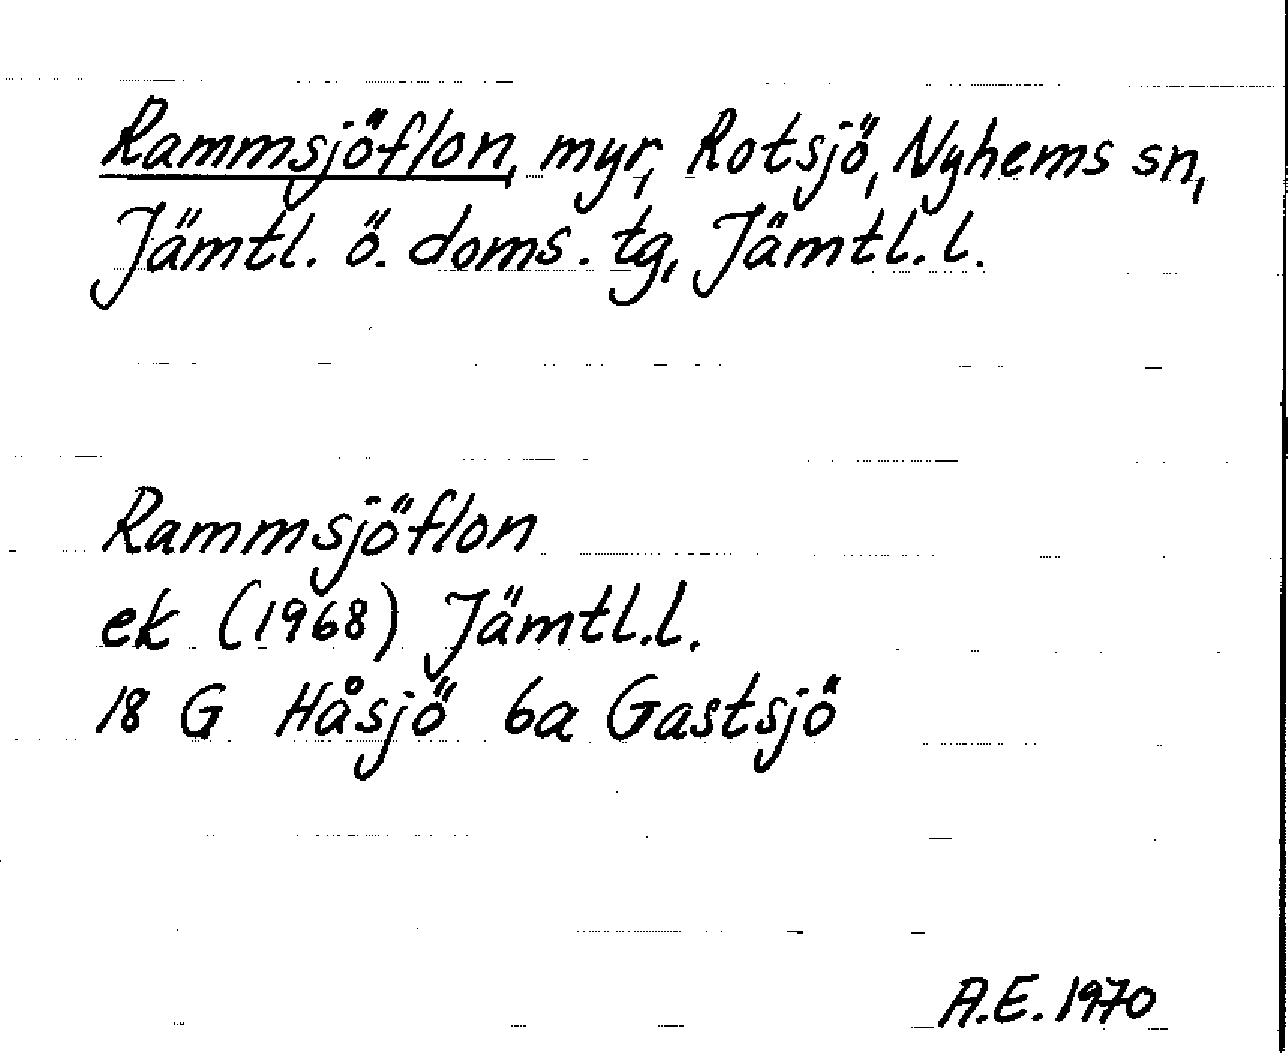 Rammsjöflon, myr, Rotsjö, Nyhems sn,
Jämtl. ö. doms. tg, Jämtl. l.
Rammsjöflon
ek (1968) Jämtl. l.
18 G Håsjö 6a Gastsjö
A.E. 1970